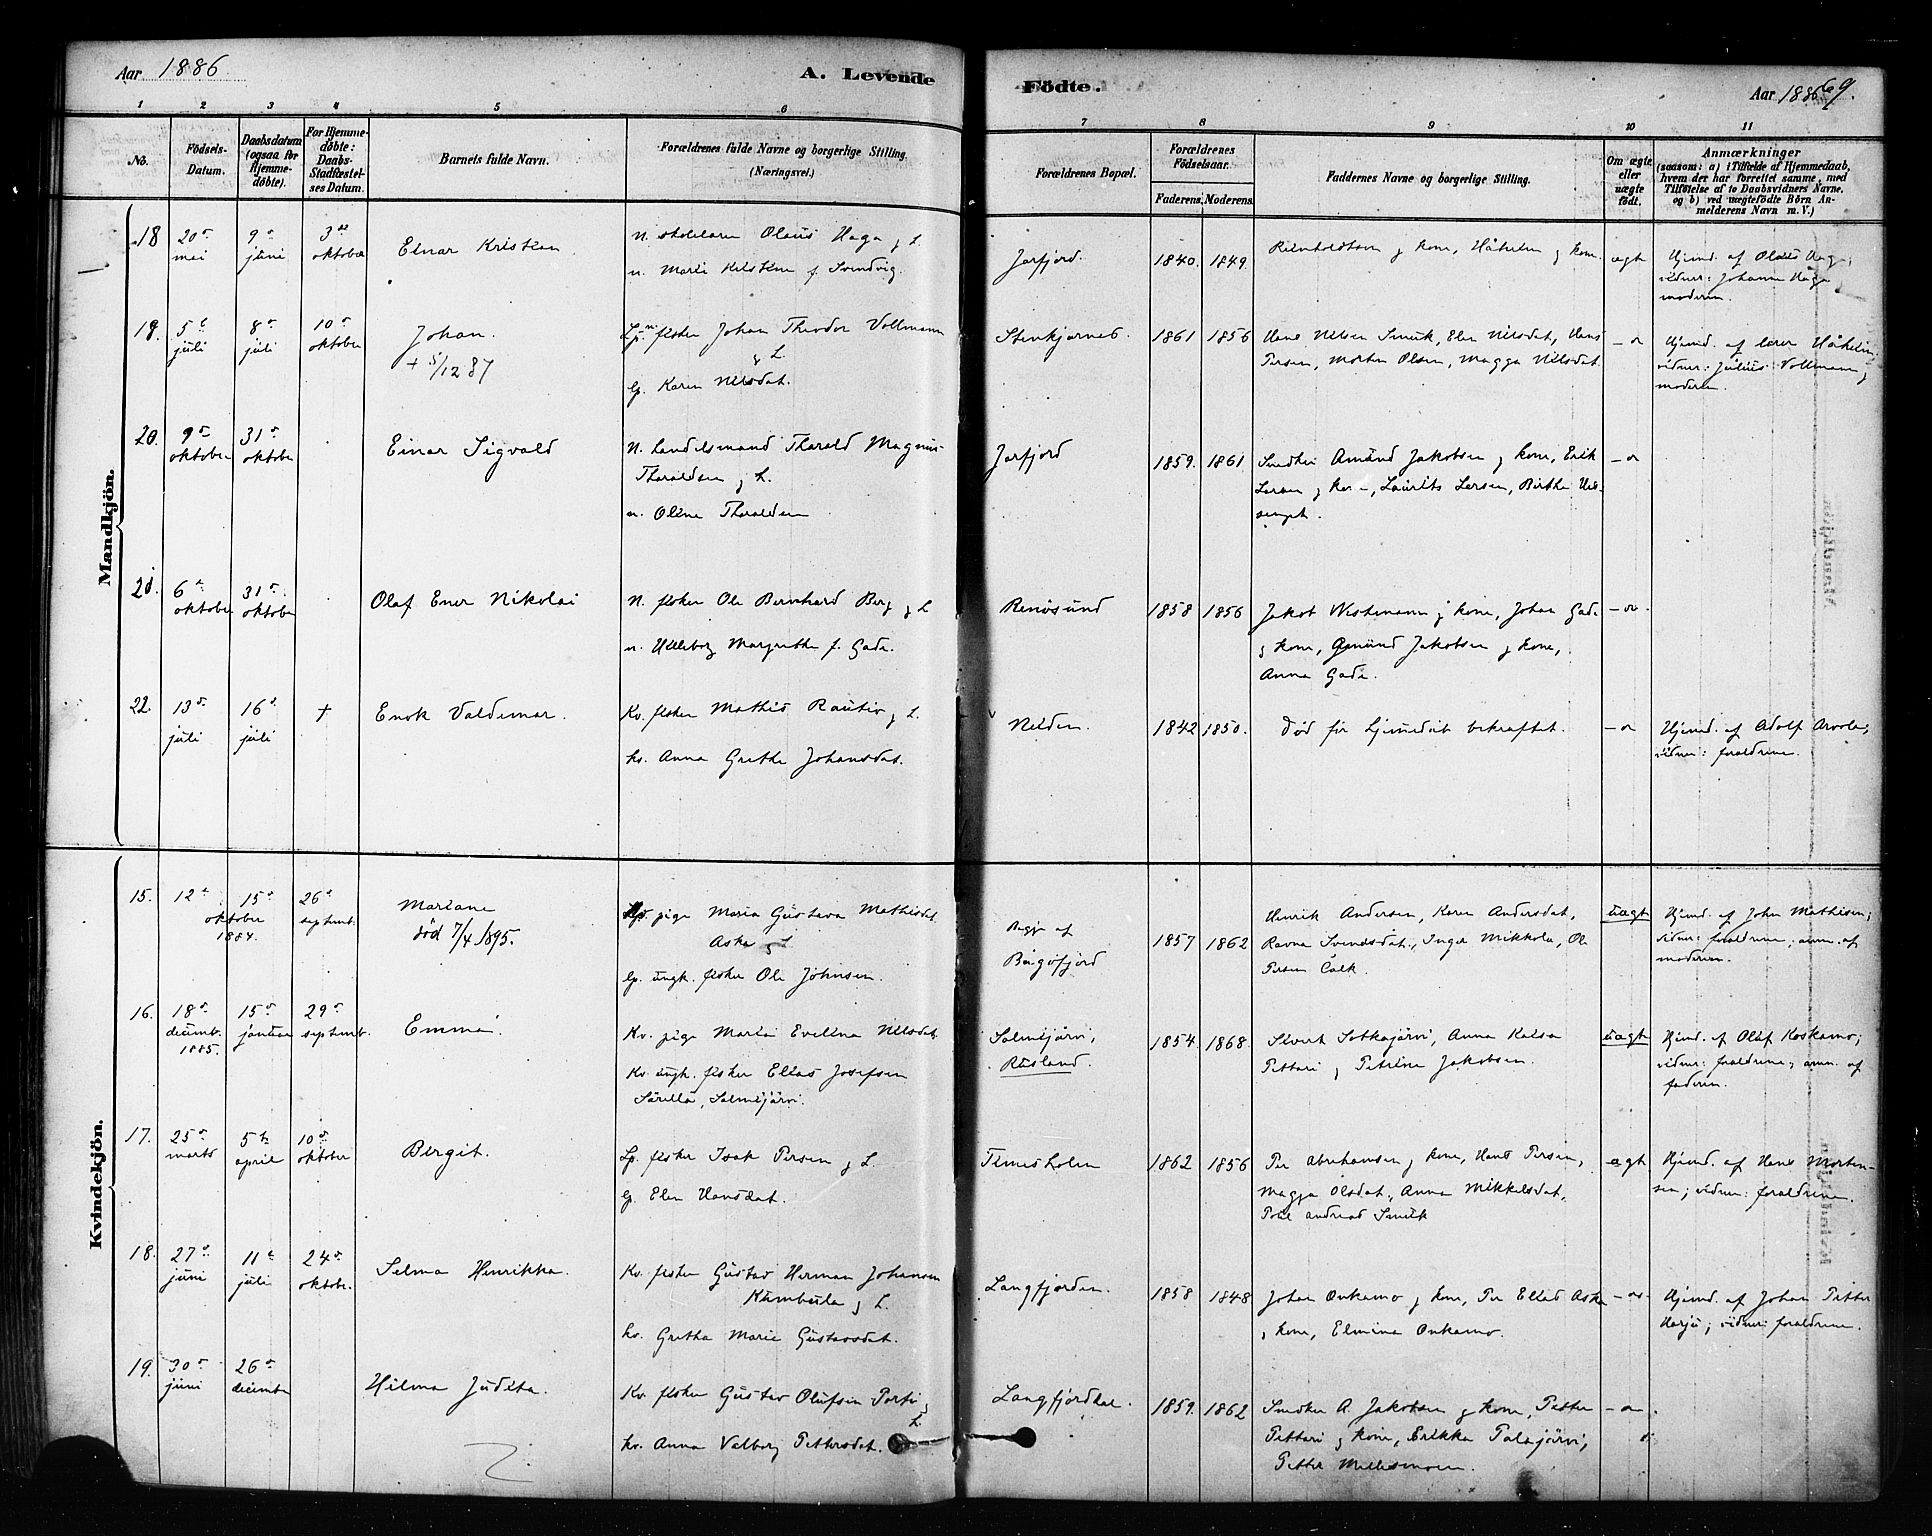 Aar 1886.
A. Levende
Födte.
Aar 1886
69.
1 2 3 4 5 6 7 8 9 10 11
No.
Födsels-
Datum.
Daabsdatum
(ogsaa for
Hjemme-
döbte).
For Hjemme-
döbte:
Daabs-
Stadfæstel-
ses Datum.
Barnets fulde Navn.
Forældrenes fulde Navne og borgerlige Stilling.
(Næringsvei.)
Forældrenes Bopæl.
Forældrenes
Födselsaar.
Faderens. Moderens.
Faddernes Navne og borgerlige Stilling.
Om ægte
eller
uægte
födt.
Anmærkninger
(saasom: a) i Tilfælde af Hjemmedaab,
hvem der har forrettet samme, med
Tilföielse af to Daabsvidners Navne,
og b) ved uægtefödte Börn An-
melderens Navn m. V.)
Mandkjön.
18 20 mai 9 juni 3 oktober
Einar Kristian
N. Olaus Haga g L
n. Marie Kristine f. Svendvig.
Jarfjord. 1840. 1849.
Reinholdtsen g kone, Håkelin g kone. ægt
Hjemd. af Olaus Haga;
vidner: Johanne Haga
moderen.
19. 5 juli 8 juli 10 oktober
Johan.
+ 5/12 87
Lp. fisker Johan Theodor Vollmann
g L.
lp. Karen Nilsdat.
Stenkjærnes. 1861 1856
Hans Nilsen Smuk, Elen Nilsdat, Hans
Persen, Morten Olsen, Magga Nilsdat.
Hjemd. af lærer Håkelin;
vidner: Julius Vollmann g
moderen.
20. 9 oktober 31 oktober
Einar Sigvald
N. Landhandelsmand Tharald Magnus
Tharaldsen g L.
n. Oline Tharaldsen
Jarfjord 1859. 1861
Snedker Amund Jakobsen g kone, Erik
Larsen g kone, Laurits Larsen, Birthe
21. 6 oktober 31 oktober
Olaf Ener Nikolai
N. fisker Ole Bernhard Berg g L
n. Ulleborg Margrethe f. Gade.
Renøsund 1858 1856
Jakob Westemann g kone, Johan Gade
g kone, Amund Jakobsen g kone,
Anna Gade.
22. 13 juli 16 juli +
Enok Valdemar.
Kv. fisker Mathis Rautio g L.
kv. Anna Grethe Johansdat.
Neiden. 1842 1850.
Død før hjemmedåb bekræftet.
Hjemd. af Adolf Arvola;
vidner: forældrene.
Kvindekjön.
15. 12 15 oktober 1884. 26 septemb.
Mariane
død 7/4 1895.
Lp. pige Maria Gustava Mathisdat
Aska g L
lp. ungk. fisker Ole Johnsen.
Bugø af
Bugøfjord
1857 1862
Henrik Andersen, Karen Andersdat,
Ravna Svendsdat., Inger Mikkola, Ole
Persen Calk.
uægt
Hjemd. af John Mathisen;
vidner: forældrene; anm. af
moderen.
16. 18 decemb. 1885. 15 januar 29 septemb.
Emma.
Kv. pige Maria Evelina Nilsdat
Kv. ungk. fisker Elias Josefsen
Sarilla, Salmijärvi.
Salmijärvi,
Rusland.
1854. 1868.
Sivert Sotkajärvi, Anna Kaisa
Pettari g Petrine Jakobsen.
uægt
Hjemd. af Olaf Koskamo;
vidner: forældrene; anm. af
faderen.
17. 25 marts 5 april 10 oktober
Bergit.
Lp. fisker Isak Persen g L.
lp. Elen Hansdat.
Timesholm 1862 1856
Per Abrahamsen g kone, Hans Persen,
Magga Olsdat., Anna Mikkelsdat,
Poul Andreas Smuk
ægt
Hjemd. af Hans Morten-
sen; vidner: forældrene.
18. 27 juni 11 juli 24 oktober
Selma Henrikka.
Kv. fisker Gustav Herman Johansen
Kumbula g L.
kv. Gretha Marie Gustavsdat.
Langfjorden. 1858 1848
Johan Onkamo g kone, Per Elias Aska
g kone, Elmina Onkamo.
Hjemd. af Johan Petter
Harju; vidner: forældrene.
19. 30 juni 26 decemb
Hilma Judita.
Kv. fisker Gustav Olufsen Porti g
L.
kv. Anna Valborg Pettersdat.
Langfjorddal. 1859. 1862
Snedker A. Jakobsen g kone, Petter
Pettari g kone, Erikka Palojärvi,
Petter Mellesmoen.